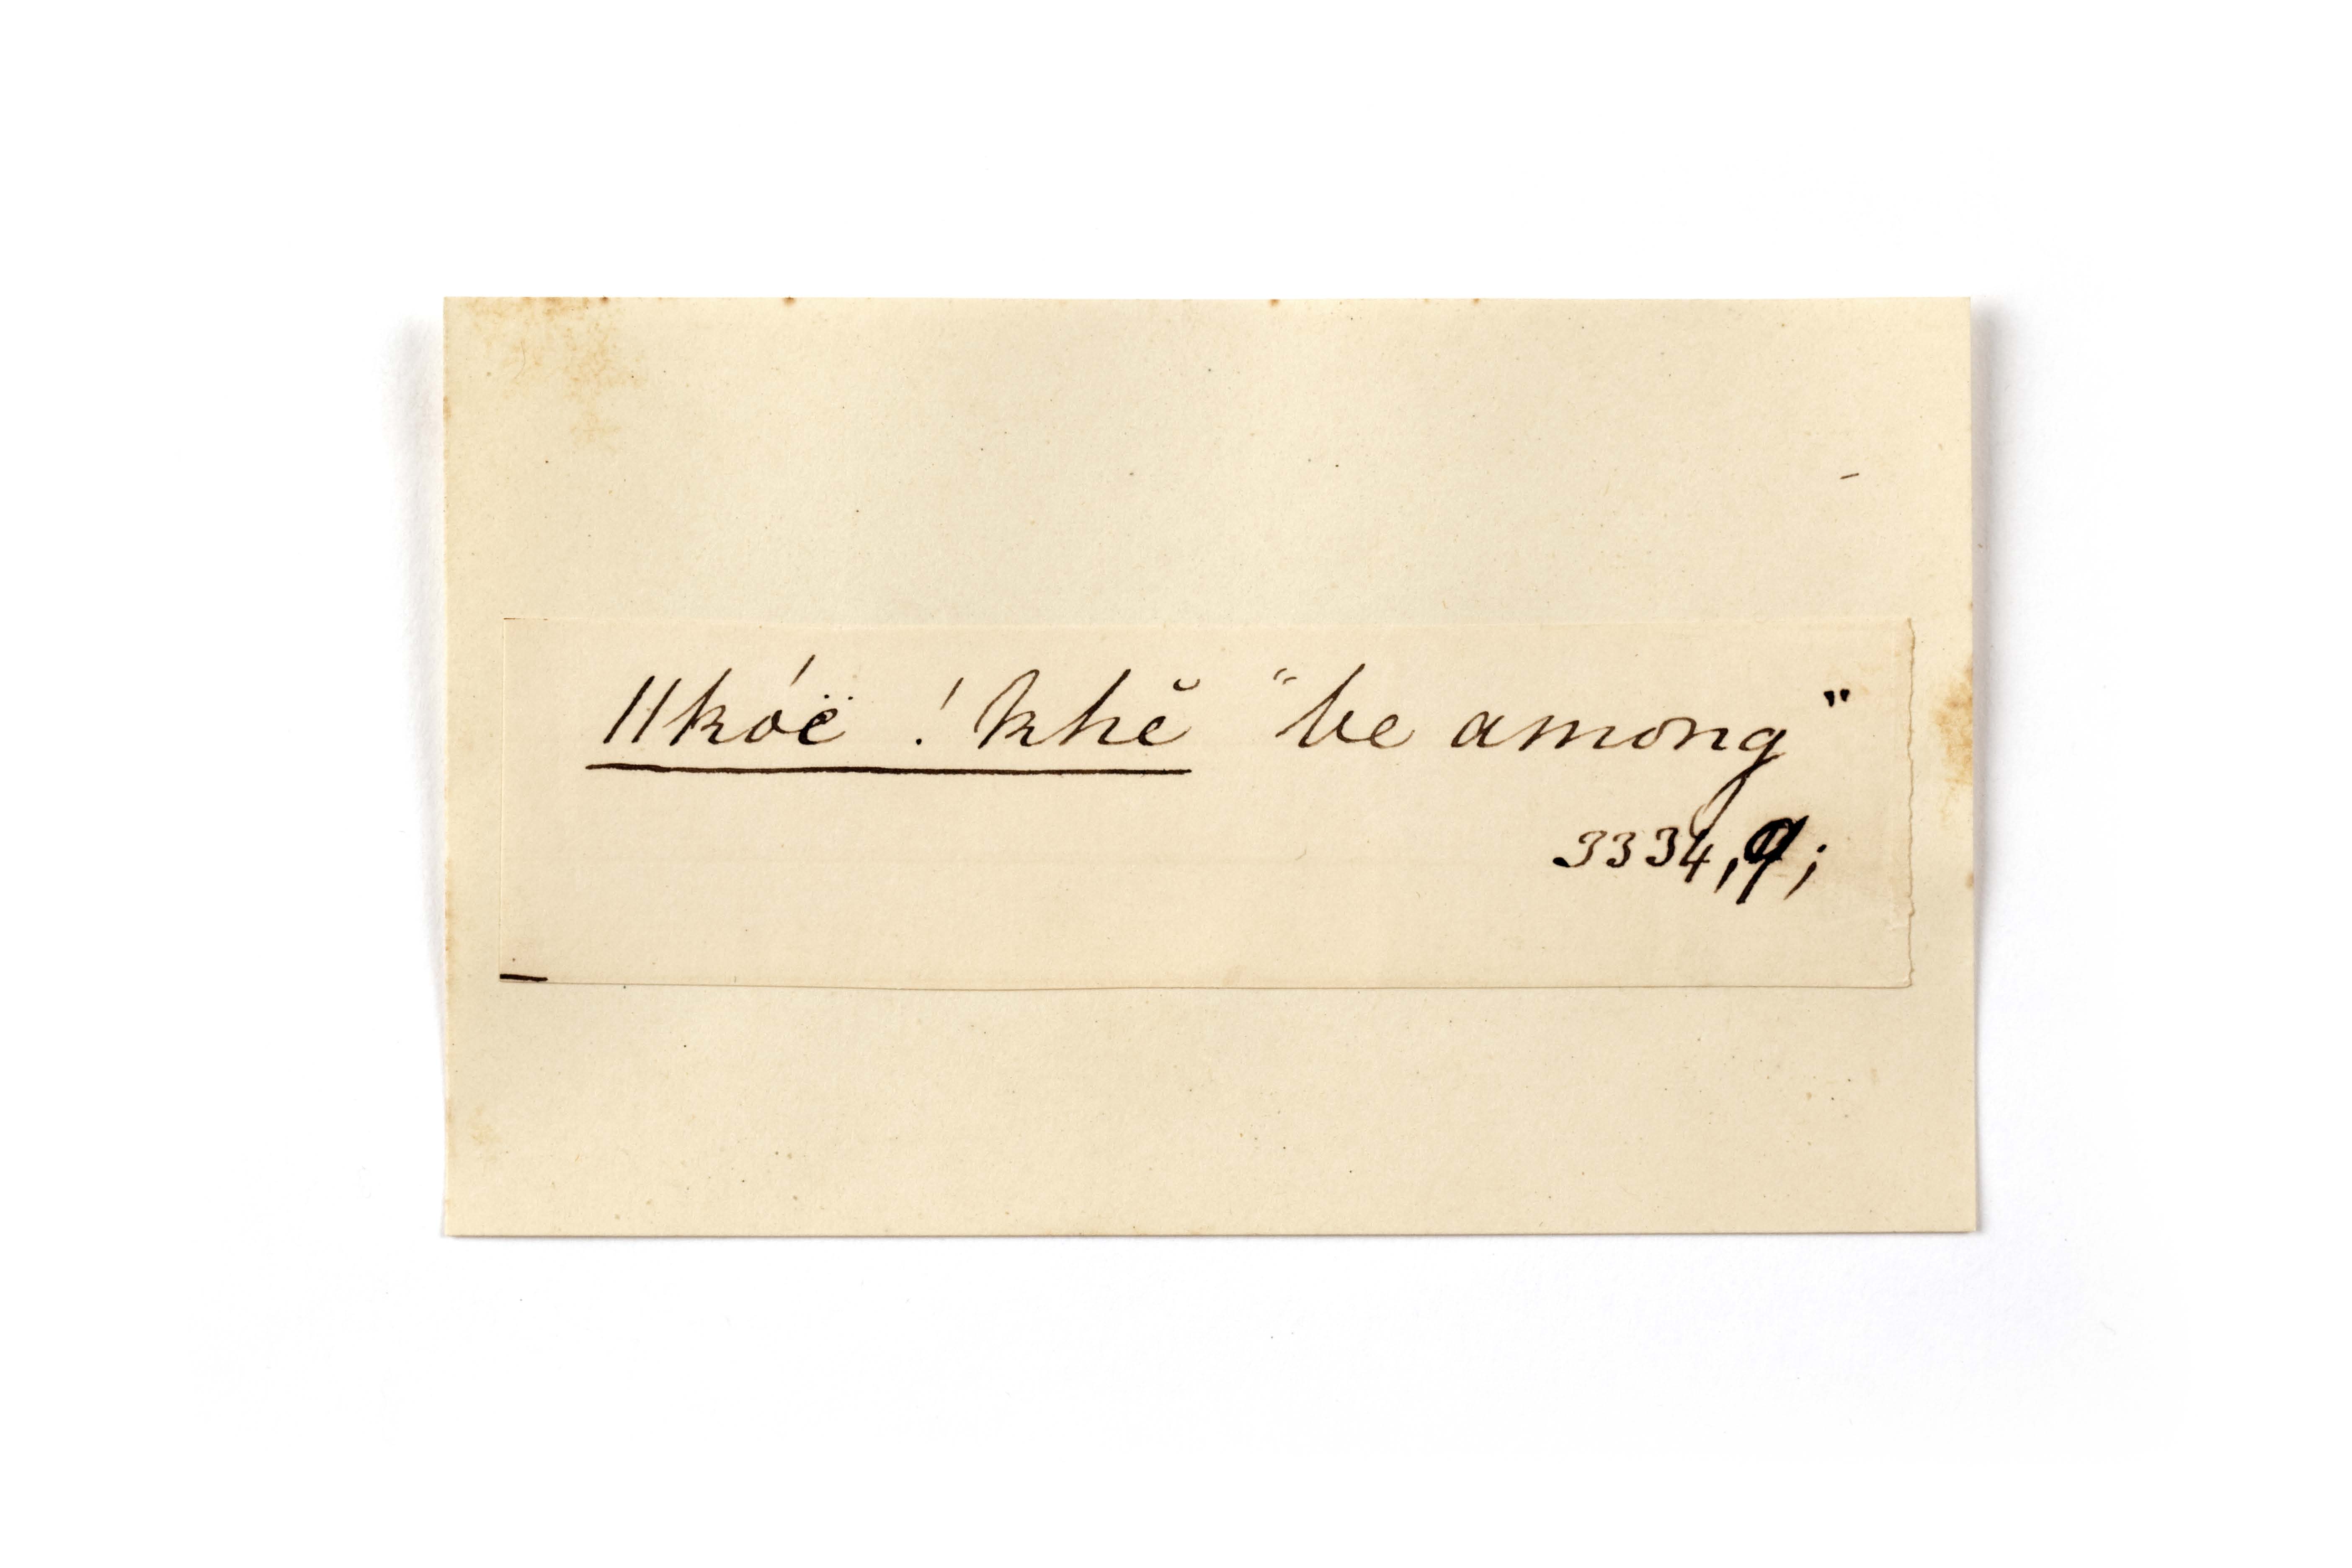 ǁkóë ǃkhĕ "be among"
3334, 9;